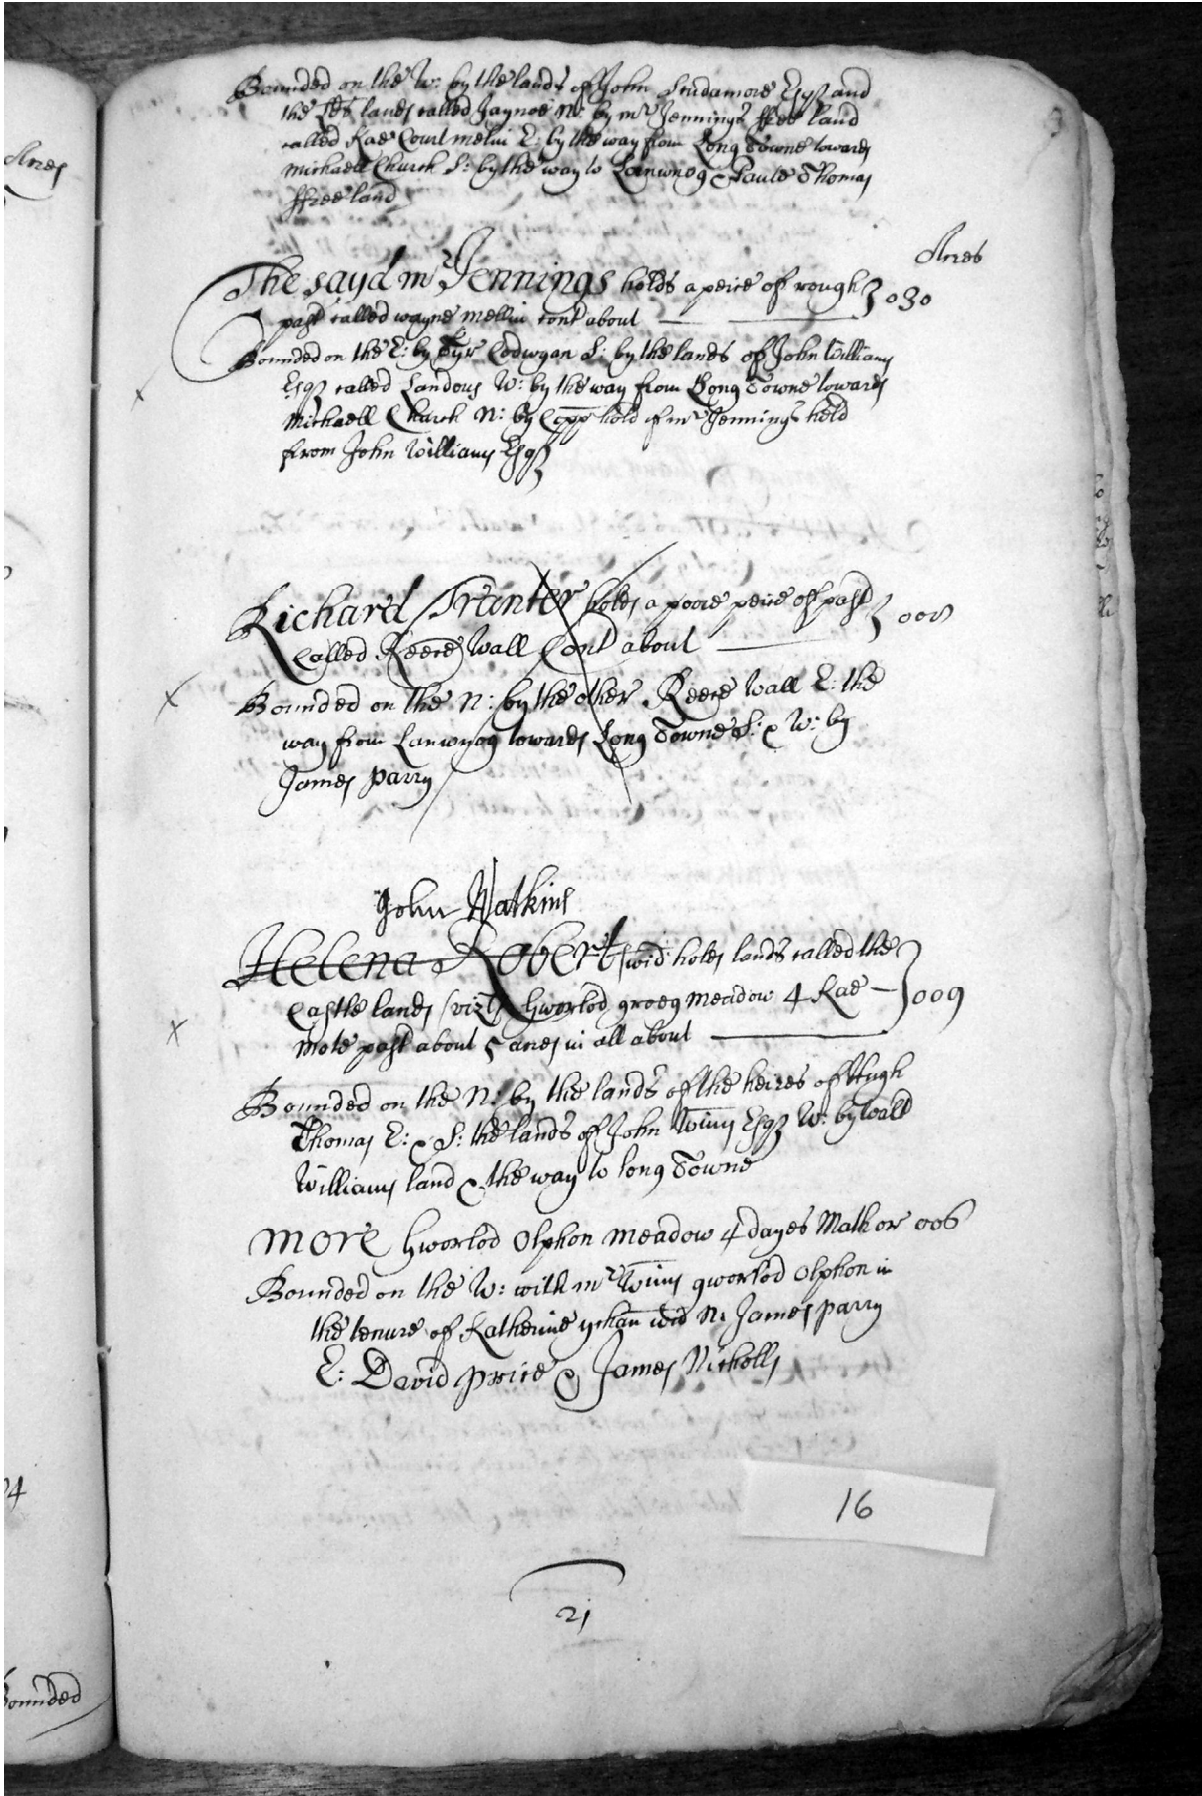 Acres
Bounded on the W: by the lands of John Scudamore Esqr and
the lands called Jaynoe N: by mr Jennings ffree land
called Kae Court melin E: by the way from Long Towne towards
Michaell Church S: by the way to Lanwnog & Paule Thomas
ffree land
Acres
The sayd mr Jennings holds a peice of rough
past called wayne mellin cont about 030
Bounded on the E: by Tyr Codwgan S: by the lands of John Williams
Esqr called Landous W: by the way from Long Towne towards
Michaell Church N: by Copp hold of mr Jennings held
from John Williams Esqr
Richard Tranter holds a poore peice of past
Called Reece Wall Cont about 008
Bounded on the N: by the other Reece Wall E: the
way from Lanwnog towards Long Towne S: & W: by
James Parry
John Watkins
Helena Roberts wid: holds lands called the
Castle lands (vizt) hworlod groeg meadow 4 Kae
mote past about 5 acres in all about 009
Bounded on the N: by the lands of the heires of Hugh
Thomas E: & S: the lands of John Wiims Esqr W: by Wall
Williams land & the way to long Towne
more hworlod Olphon meadow 4 dayes Math or 006
Bounded on the W: with mr Wiims gworlod Olphon in
the tenure of Katherine wid N: James Parry
E: David Price & James Nicholls
16
21
4
Bounded